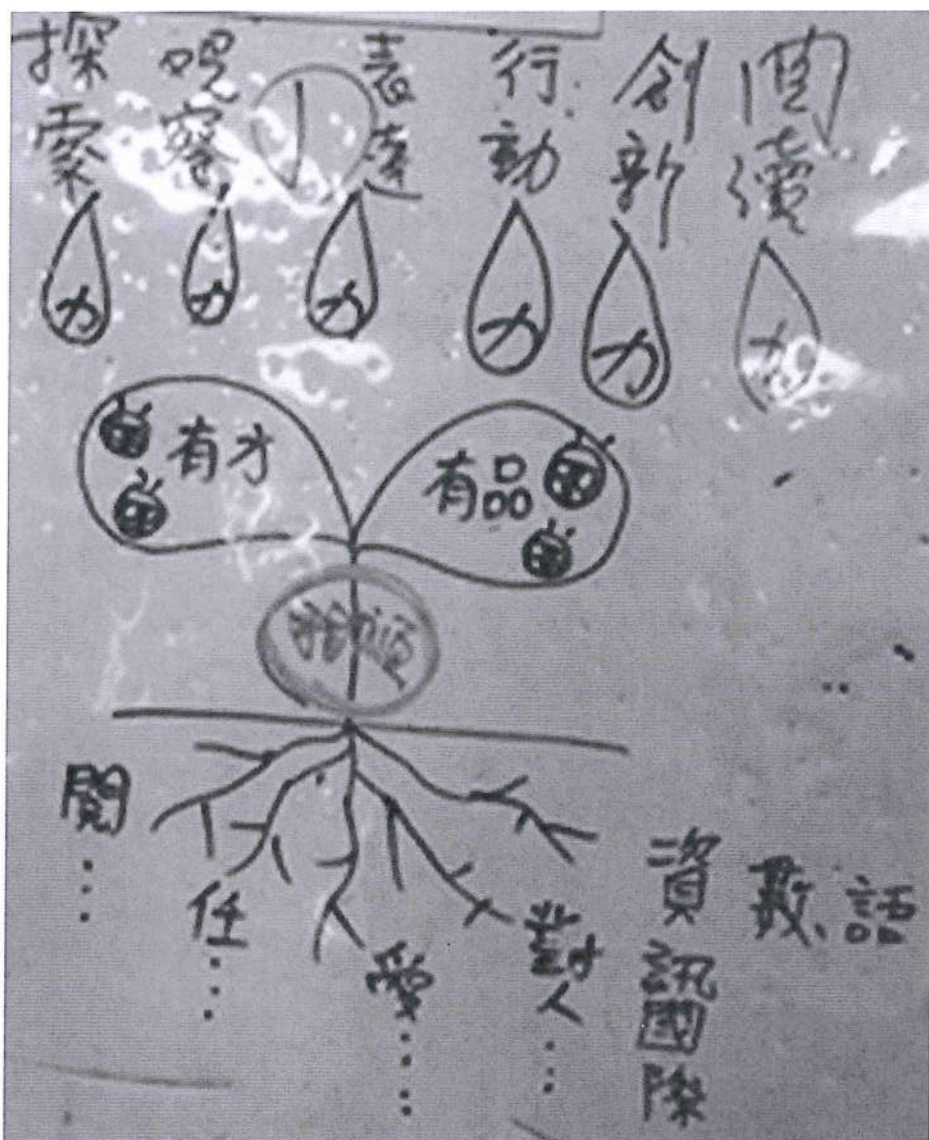 探索力
觀察力
表達力
行動力
創新力
閱讀力
有才
有品
閱…
任…
愛…
對人…
資訊國際
數
語